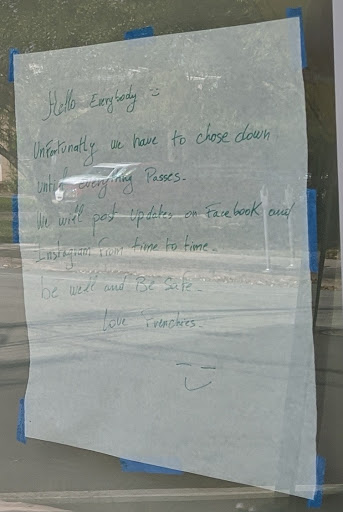 Hello Everybody :)
Unfortunatly we have to chose down
until everything Passes.
We will post updates on Facebook and
Instagram From time to time.
be well and Be Safe.
Love Frenchies.